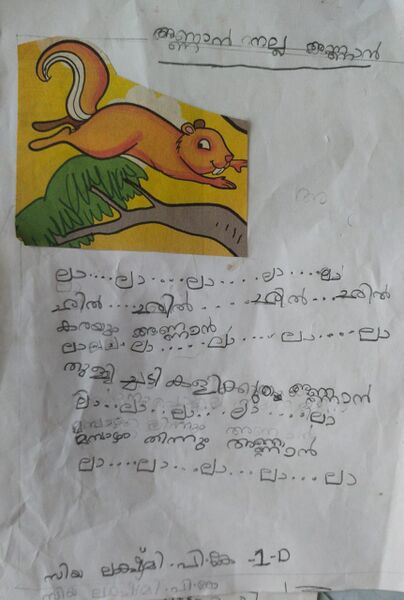 അണ്ണാൻ നല്ല അണ്ണാൻ
ലാ....ലാ....ലാ....ലാ....ലാ
ഛിൽ....ഛിൽ....ഛിൽ....ഛിൽ
കരയും അണ്ണാൻ
ലാ....ലാ....ലാ....ലാ
തുള്ളി ച്ചാടി കളിക്കും അണ്ണാൻ
ലാ...ലാ...ലാ....ലാ....ലാ
മാമ്പഴം തിന്നും അണ്ണാൻ
ലാ....ലാ....ലാ....ലാ....ലാ
സിയ ലക്ഷ്മി.പി.കെ -1-D